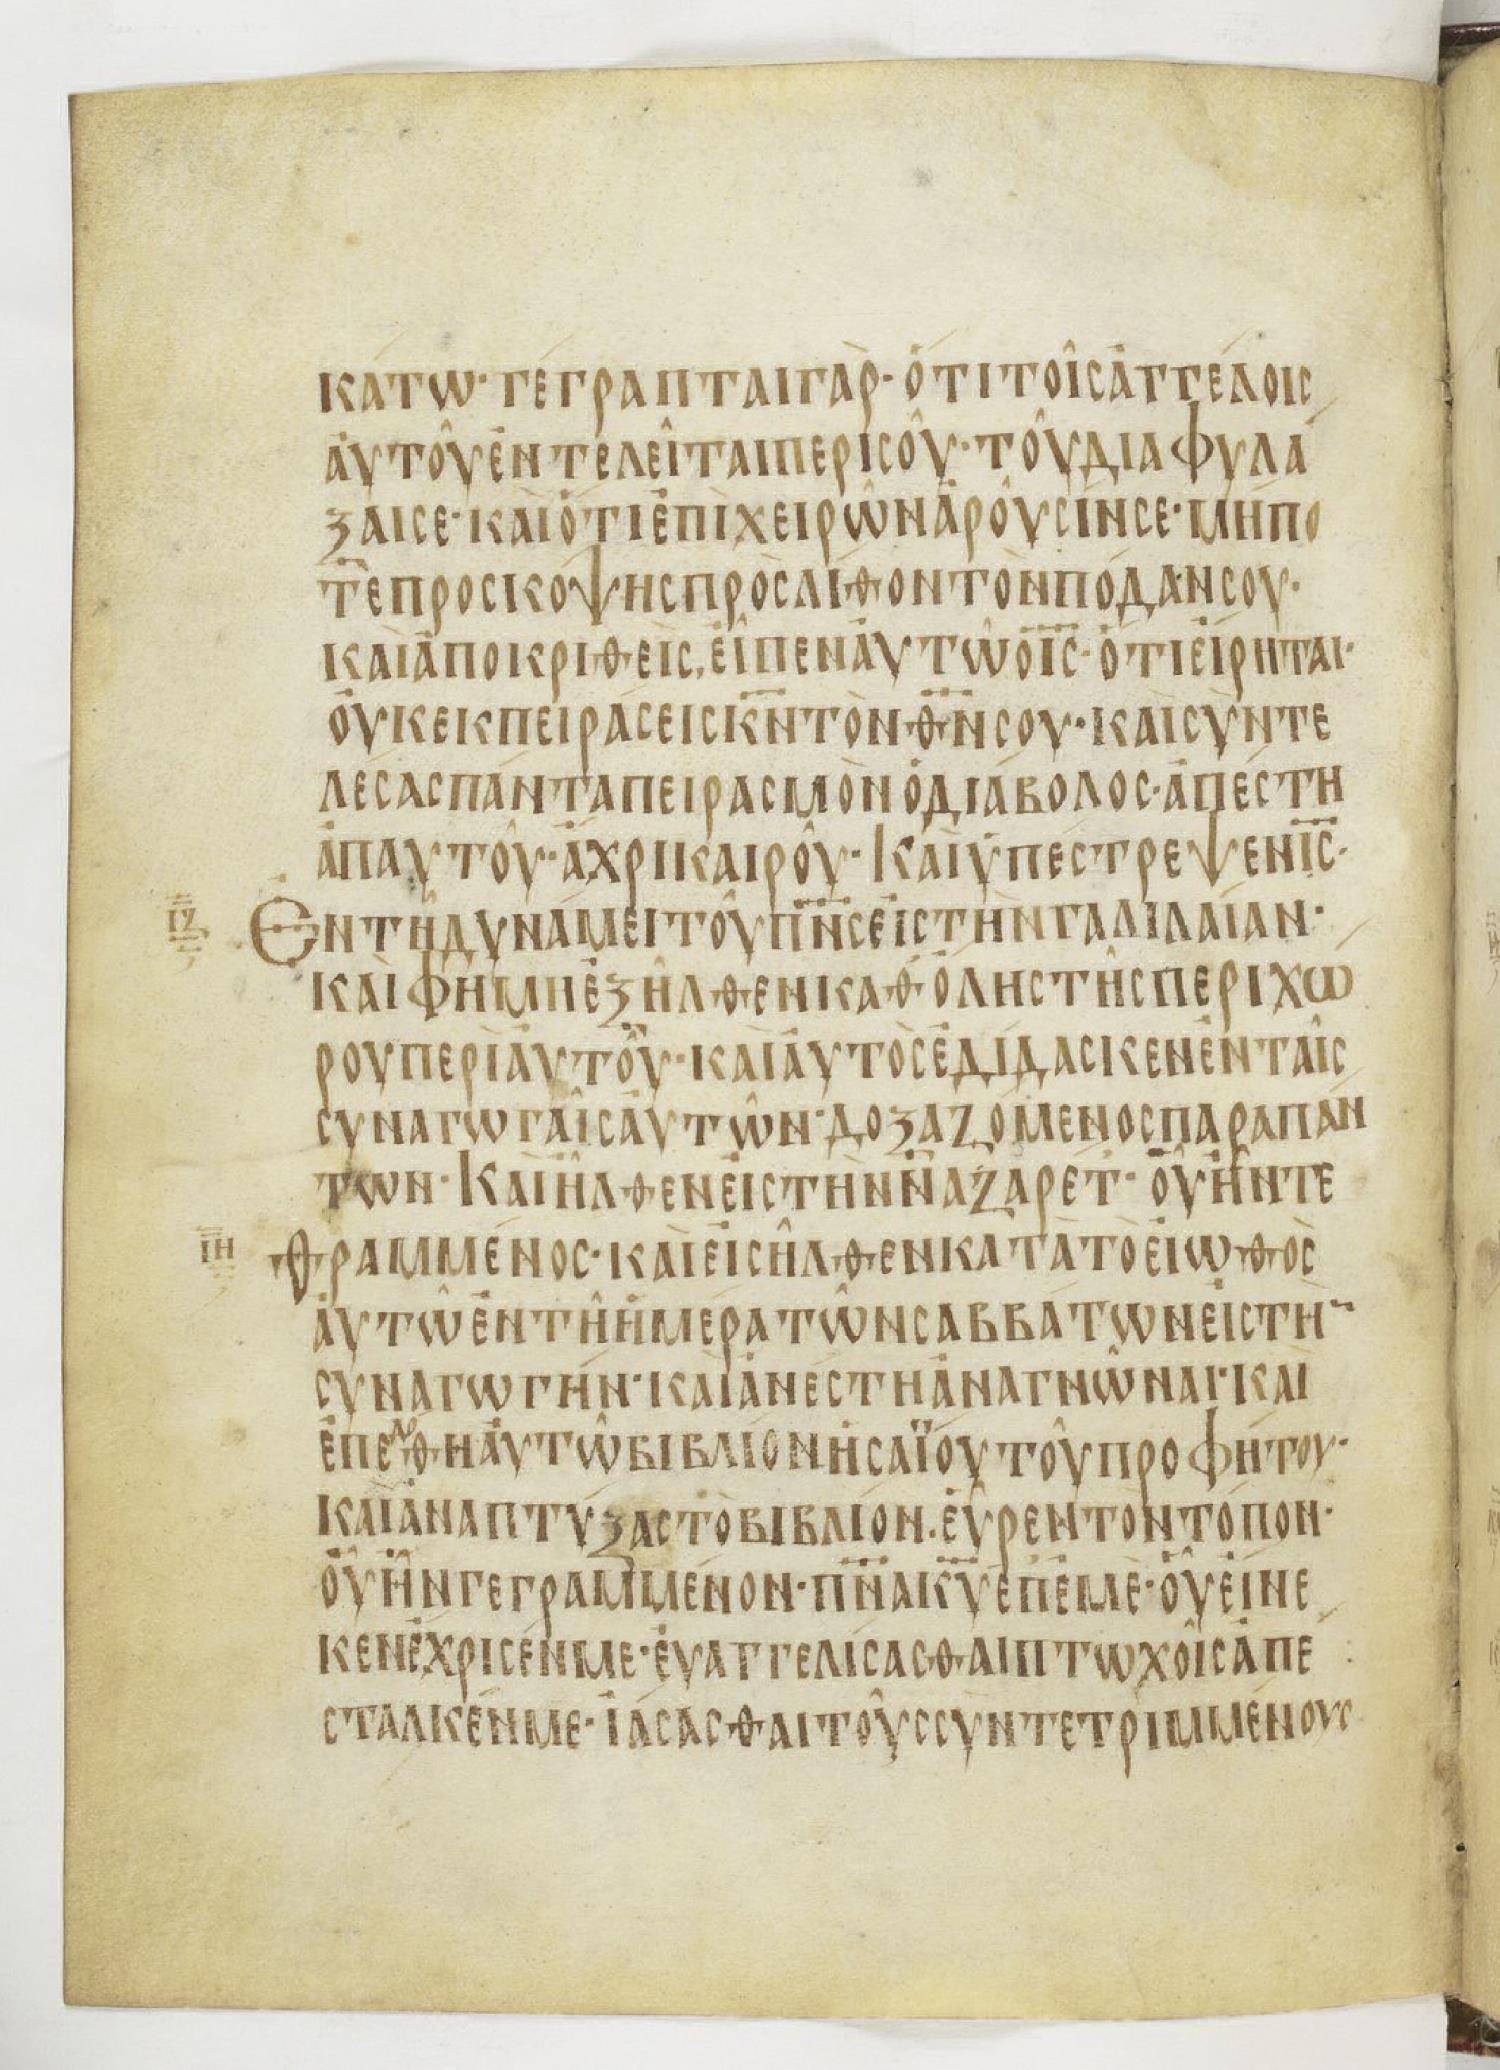 κάτω· γέγραπται γὰρ· ὅτι τοῖς ἀγγέλοις
ἀυτοῦ ἐντελεῖται περὶ σοῦ· τοῦ διαφυλά
ξαι σε· καὶ ὅτι ἐπὶ χειρῶν ἀροῦσίν σε· μήπο
τε προσκόψης πρὸς λίθον τὸν πόδαν σου·
καὶ ἀποκριθεὶς, εἶπεν ἀυτῶ ὁ ις· ὅτι ἐίρηται·
ὀυκ εκπειράσεις κν τὸν θν σου· καὶ συντε
λέσας πάντα πειρασμὸν ὁ διάβολος· ἀπέστη
ἀπ αυτοῦ· ἄχρι καιροῦ· Καὶ ὑπέστρεψεν ις·
ιζ Ἐν τῆ δυνάμει του πνς ἐις τὴν γαλιλαίαν·
καὶ φήμη ἐξῆλθεν καθ ὅλης τῆς περιχώ
ρου περὶ ἀυτοῦ· καὶ ἀυτὸς ἐδίδασκεν ἐν ταῖς
συναγωγαῖς ἀυτῶν· δοξαζόμενος παρὰ πάν
των· Καὶ ἦλθεν ἐις τὴν ναζαρέτ· οὗ ἦν τε
ιη θραμμένος· καὶ ἐισῆλθεν κατὰ τὸ ἐιωθὸς
ἀυτῶ ἐν τῆ ἡμέρα τῶν σαββάτων ἐις τὴ¯
συναγωγήν· καὶ ἀνέστη ἀναγνῶναι· καὶ
ἐπεδόθη ἀυτῶ βιβλίον ἡσαΐου τοῦ προφήτου·
καὶ ἀναπτύξας τὸ βιβλίον. ἑῦρεν τὸν τόπον·
οὗ ἦν γεγραμμένον· πνα κυ ἐπ ἐμέ· οὗ ἐίνε
κεν ἔχρισέν με· ἐυαγγελίσασθαι πτωχοῖς ἀπέ
σταλκέν με· ἰάσασθαι τοῦς συντετριμμένους